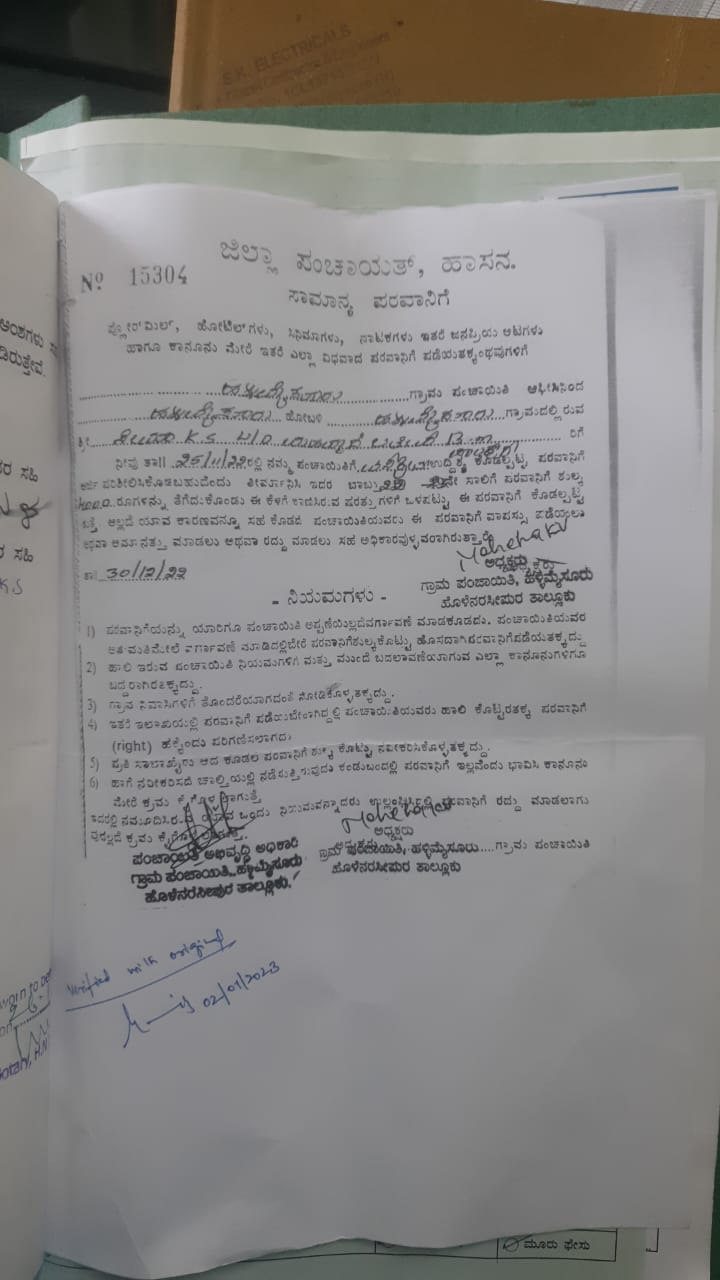 E.K. ELECTRICALS
ಅಂಶಗಳು
ಡಿರುತ್ತೇವೆ.
ಸಹಿ
ಸಹಿ
K.S
ಜಿಲ್ಲಾ ಪಂಚಾಯತ್, ಹಾಸನ.
Nº 15304
ಸಾಮಾನ್ಯ ಪರವಾನಿಗೆ
ಫ್ಲೋರ್‌ಮಿಲ್, ಹೋಟೆಲ್‌ಗಳು, ಸಿನಿಮಾಗಳು, ನಾಟಕಗಳು ಇತರೆ ಜನಪ್ರಿಯ ಆಟಗಳು
ಹಾಗೂ ಕಾನೂನು ಮೇರೆ ಇತರೆ ಎಲ್ಲಾ ವಿಧವಾದ ಪರವಾನಿಗೆ ಪಡೆಯತಕ್ಕಂಥವುಗಳಿಗೆ
ಹಳ್ಳಿಮೈಸೂರು ಗ್ರಾಮ ಪಂಚಾಯಿತಿ ಆಫೀಸಿನಿಂದ
ಹಳ್ಳಿಮೈಸೂರು ಹೋಬಳಿ ಹಳ್ಳಿಮೈಸೂರು ಗ್ರಾಮದಲ್ಲಿರುವ
ಶ್ರೀ K.S ರಿಗೆ
ನೀವು ತಾ|| 25/11/22 ರಲ್ಲಿ ನಮ್ಮ ಪಂಚಾಯಿತಿಗೆ ಉದ್ದಿಶ್ಯ ಕೊಡಲ್ಪಟ್ಟ ಪರವಾನಿಗೆ
ಅರ್ಜಿ ಪರಿಶೀಲಿಸಿಕೊಡಬಹುದೆಂದು ತೀರ್ಮಾನಿಸಿ ಇದರ ಬಾಬ್ತು ನೇ ಸಾಲಿಗೆ ಪರವಾನಿಗೆ ಶುಲ್ಕ
ರೂಗಳನ್ನು ತೆಗೆದುಕೊಂಡು ಈ ಕೆಳಗೆ ಕಾಣಿಸಿರುವ ಷರತ್ತುಗಳಿಗೆ ಒಳಪಟ್ಟು ಈ ಪರವಾನಿಗೆ ಕೊಡಲ್ಪಟ್ಟಿ
ಅಲ್ಲದೆ ಯಾವ ಕಾರಣವನ್ನೂ ಸಹ ಕೊಡದೆ ಪಂಚಾಯಿತಿಯವರು ಈ ಪರವಾನಿಗೆ ವಾಪಸ್ಸು ಪಡೆಯಲು
ಅಥವಾ ಅಮಾನತ್ತು ಮಾಡಲು ಅಥವಾ ರದ್ದು ಮಾಡಲು ಸಹ ಅಧಿಕಾರವುಳ್ಳವರಾಗಿರುತ್ತಾರೆ.
ತಾ|| 30/12/22
ಅಧ್ಯಕ್ಷರು
ಗ್ರಾಮ ಪಂಚಾಯಿತಿ, ಹಳ್ಳಿಮೈಸೂರು
ಹೊಳೆನರಸೀಪುರ ತಾಲ್ಲೂಕು
- ನಿಯಮಗಳು -
1) ಪರವಾನಿಗೆಯನ್ನು ಯಾರಿಗೂ ಪಂಚಾಯಿತಿ ಅಪ್ಪಣೆಯಿಲ್ಲದೆ ವರ್ಗಾವಣೆ ಮಾಡಕೂಡದು. ಪಂಚಾಯಿತಿಯವರ
ಅನುಮತಿಮೇಲೆ ವರ್ಗಾವಣೆ ಮಾಡಿದಲ್ಲಿ ಬೇರೆ ಪರವಾನಿಗೆಶುಲ್ಕ ಕೊಟ್ಟು ಹೊಸದಾಗಿ ಪರವಾನಿಗೆ ಪಡೆಯತಕ್ಕದ್ದು
2) ಹಾಲಿ ಇರುವ ಪಂಚಾಯಿತಿ ನಿಯಮಗಳಿಗೆ ಮತ್ತು ಮುಂದೆ ಬದಲಾವಣೆಯಾಗುವ ಎಲ್ಲಾ ಕಾನೂನುಗಳಿಗೂ
ಬದ್ದರಾಗಿರತಕ್ಕದ್ದು.
3) ಗ್ರಾಮ ನಿವಾಸಿಗಳಿಗೆ ತೊಂದರೆಯಾಗದಂತೆ ನೋಡಿಕೊಳ್ಳತಕ್ಕದ್ದು.
4) ಇತರೆ ಇಲಾಖೆಯಲ್ಲಿ ಪರವಾನಿಗೆ ಪಡೆಯಬೇಕಾಗಿದ್ದಲ್ಲಿ ಪಂಚಾಯಿತಿಯವರು ಹಾಲಿ ಕೊಟ್ಟಿರತಕ್ಕ ಪರವಾನಿಗೆ
(right) ಹಕ್ಕೆಂದು ಪರಿಗಣಿಸಲಾಗದು.
5) ಪ್ರತಿ ಸಾಲಾಖೈರು ಆದ ಕೂಡಲೆ ಪರವಾನಿಗೆ ಶುಲ್ಕ ಕೊಟ್ಟು ನವೀಕರಿಸಿಕೊಳ್ಳತಕ್ಕದ್ದು.
6) ಹಾಗೆ ನವೀಕರಿಸದೆ ಚಾಲ್ತಿಯಲ್ಲಿ ನಡೆಸುತ್ತಿರುವುದು ಕಂಡುಬಂದಲ್ಲಿ ಪರವಾನಿಗೆ ಇಲ್ಲವೆಂದು ಭಾವಿಸಿ ಕಾನೂನು
ಮೇರೆ ಕ್ರಮ ಕೈಗೊಳ್ಳಲಾಗುತ್ತೆ
ಇದರಲ್ಲಿ ನಮೂದಿಸಿರುವ ಯಾವ ಒಂದು ನಿಯಮವನ್ನಾದರು ಉಲ್ಲಂಘಿಸಿದಲ್ಲಿ ಪರವಾನಿಗೆ ರದ್ದು ಮಾಡಲಾಗು
ವುದಲ್ಲದೆ ಕ್ರಮ ಕೈಗೊಳ್ಳಲಾಗುತ್ತೆ.
ಪಂಚಾಯತಿ ಅಭಿವೃದ್ಧಿ ಅಧಿಕಾರಿ
ಗ್ರಾಮ ಪಂಚಾಯಿತಿ, ಹಳ್ಳಿಮೈಸೂರು
ಹೊಳೆನರಸೀಪುರ ತಾಲ್ಲೂಕು.
ಅಧ್ಯಕ್ಷರು
ಗ್ರಾಮ ಪಂಚಾಯಿತಿ, ಹಳ್ಳಿಮೈಸೂರು....ಗ್ರಾಮ ಪಂಚಾಯಿತಿ
ಹೊಳೆನರಸೀಪುರ ತಾಲ್ಲೂಕು
Verified with original
02/01/2023
ಮೂರು ಫೇಸು